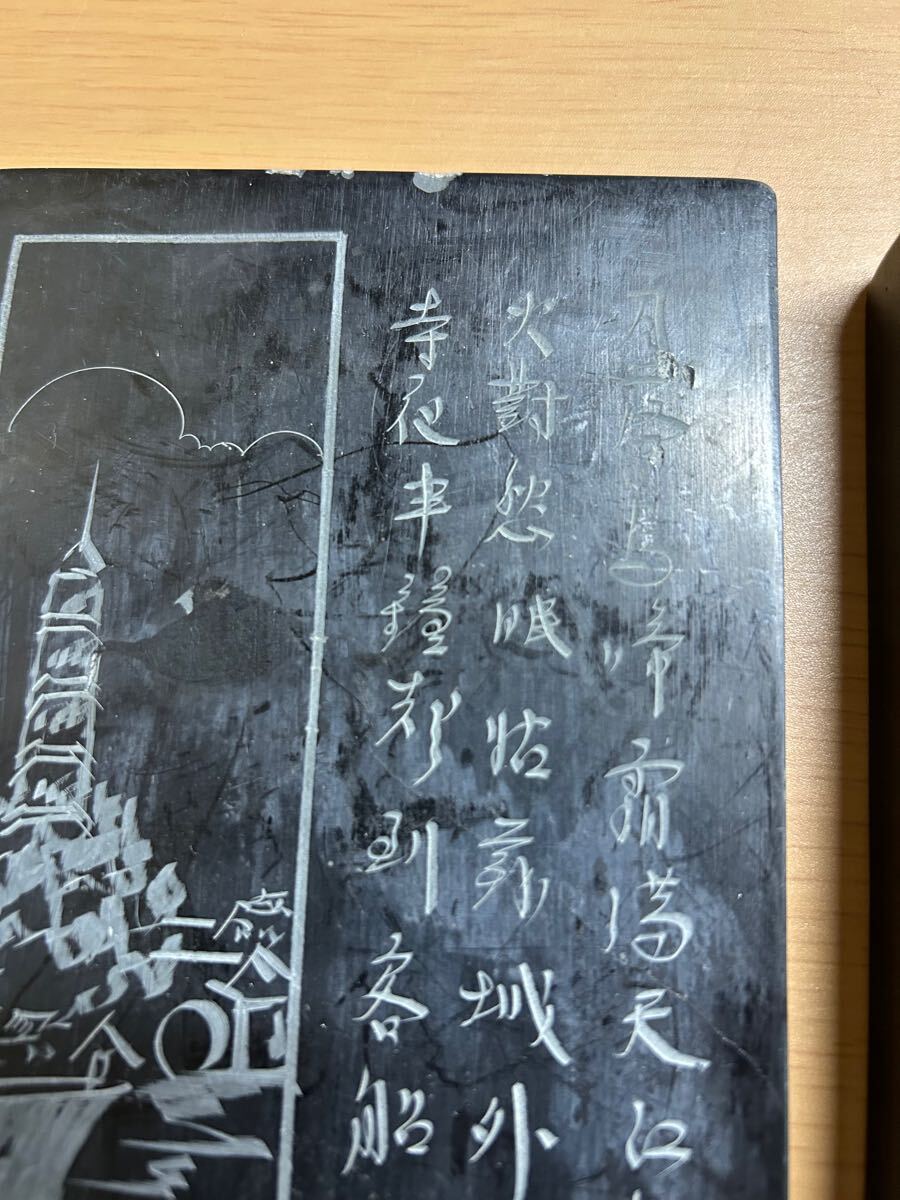 月落烏啼霜滿天江
火對愁眠姑蘇城外
寺夜半鐘聲到客船